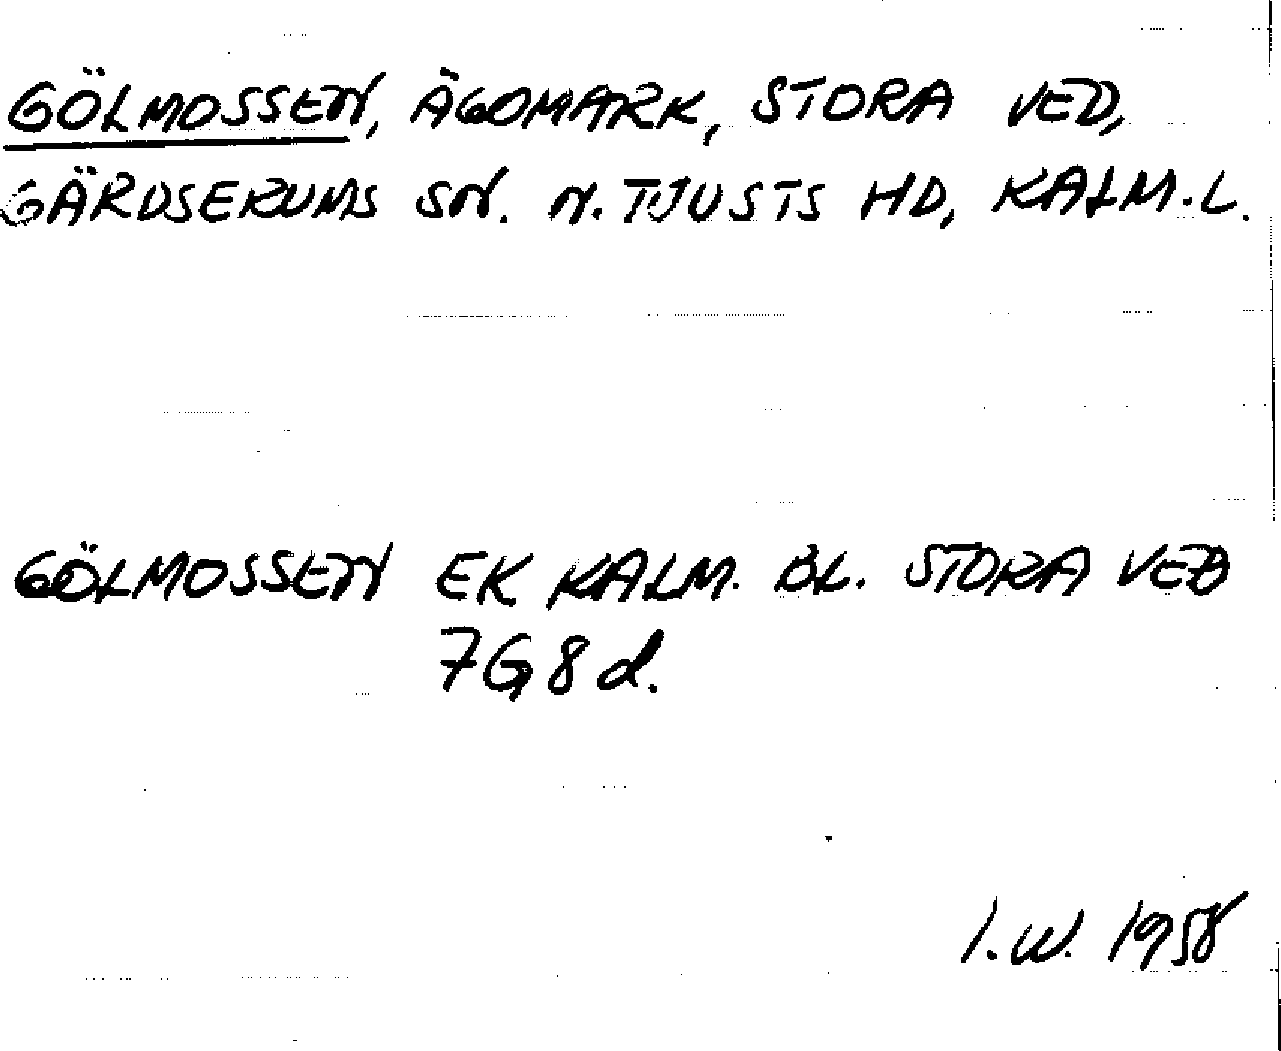 GÖLMOSSEN, ÄGOMARK, STORA VED,
GÄRDSERUMS SN. N. TJUSTS HD, KALM. L.
GÖLMOSSEN EK KALM. BL. STORA VED
7G8d.
I.W. 1958